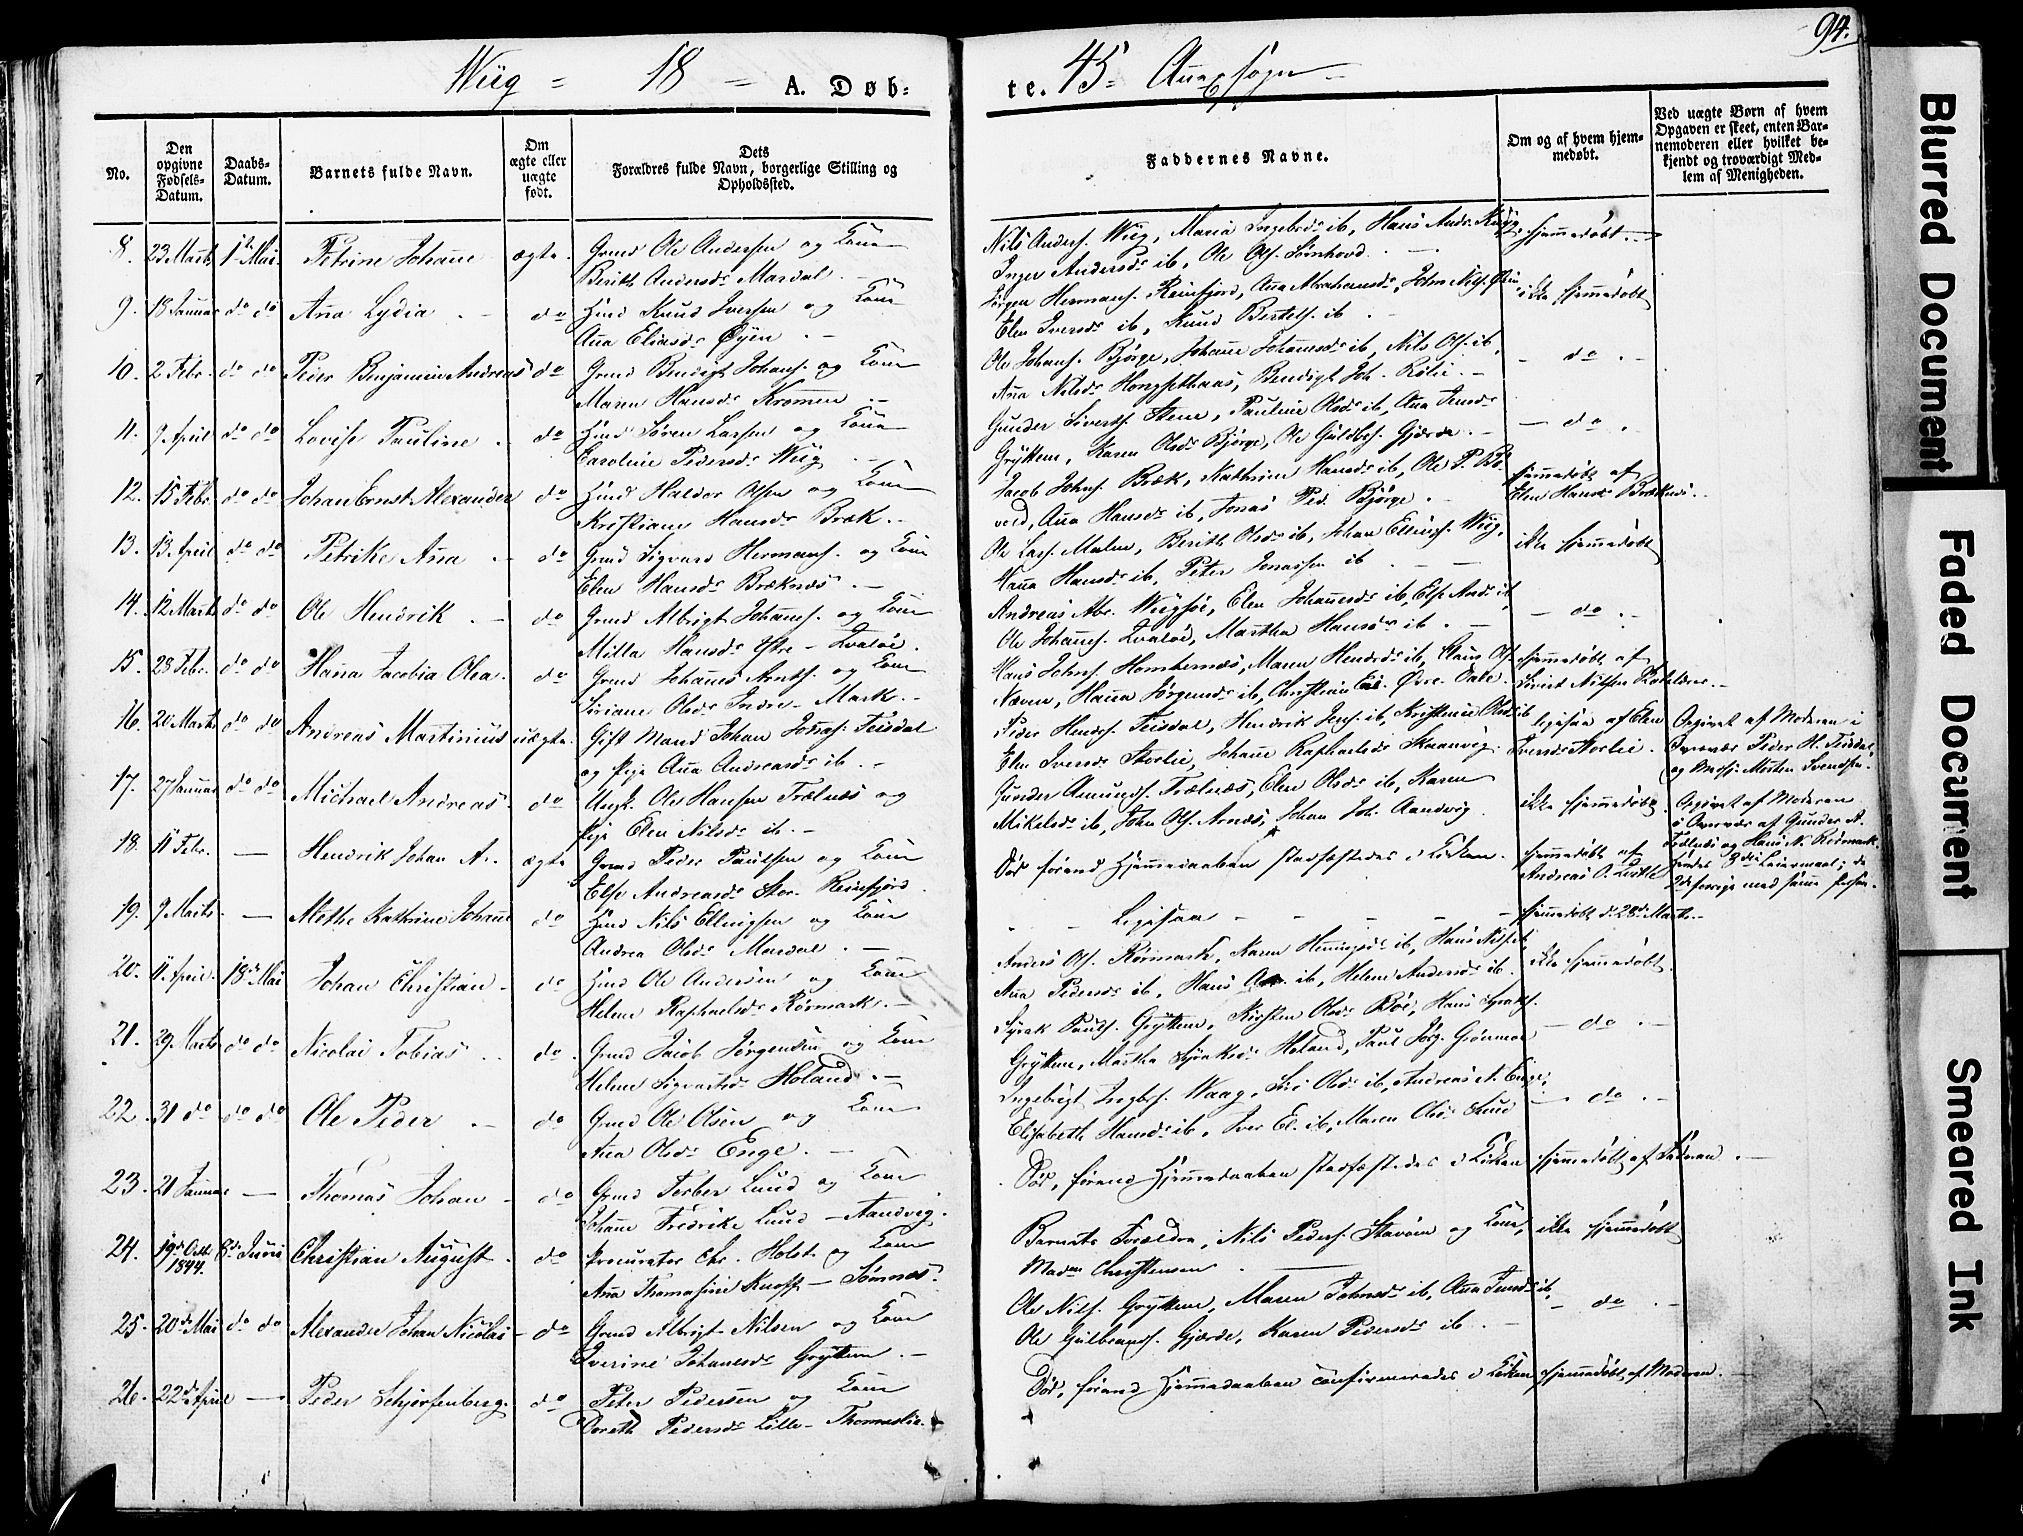 94.
Wiig = 18 = A. Døb=
te. 45 = Annex sogn
No.
Den opgivne Fødsels-Datum.
Daabs-Datum.
Barnets fulde Navn.
Om ægte eller uægte født.
Dets Forældres fulde Navn, borgerlige Stilling og Opholdssted.
Faddernes Navne.
Om og af hvem hjemmedøbt.
Ved uægte Børn af hvem Opgaven er skeet, enten Barnemoderen eller hvilket bekjendt og troværdigt Medlem af Menigheden.
8. 23 Marts 1ste Mai Petrine Johane ægte. Grmd Ole Andersen og Kone
Berith Andersdr Mardal.
Nils Anders. Wiig, Maria Ingebrdr ib, Hans Ands.
Inger Andersdr ib, Ole Ols. Sørnhovd.
hjemmedøbt
9. 18 Januar do do Ana Lydia do Huusmd Knud Iversen og Kone
Ana Eliasdr Øyen
Jørgen Hermans. Reinfjord, Ana Abrahamsdr, John Nils.
Elen Iversdr ib, Knud Bertels. ib
ikke hjemmedøbt
10. 2 Febr. do do Peter Benjamin Andreas do Grmd Bendigt Johans. og Kone
Maren Hansdr Kromen
Ole Johans. Bjørge, Johane Johansdr ib, Nils Ols. ib,
Ana Nilsdr, Bendigt Joh. Rølie
do
11. 9 April do do Lovise Pauline do Hmd Søren Larsen og Kone
Caroline Pedersdr Wiig
Gunder Siverts. Stene, Pauline Olsdr ib, Ana Jensdr
Gryttem, Karen Olsdr Bjørge, Ole Guldbr. Gjærde.
do
12. 15 Febr. do do Johan Ernst Alexander do Hmd Haldor Olsen og Kone
Kristiane Hansdr Bræk.
Jacob Johns. Bræk, Kathrine Hansdr ib, Ole P. Bo-
vold, Ana Hansdr ib, Jonas Ped. Bjørge.
hjemmedøbt af
Elen Hansdr Bræknæs.
13. 13 April do do Petrike Ana do Grmd Sigvard Hermans. og Kone
Elen Hansdr Bræknæs
Ole Lars. Malm, Berith Olsdr ib, Johan Ellings. Wiig,
Hana Hansdr ib, Peter Jonassen ib
ikke hjemmedøbt
14. 12 Marts do do Ole Hendrik do Grmd Albrigt Johans. og Kone
Milla Hansdr Ytre-Kvaløe.
Andreas Abr. Wiigsøe, Elen Johansdr ib, Else Andr. ib,
Ole Johans. Kvaløe, Martha Hansdr ib.
do
15. 28 Febr. do do Hana Jacobia Olea. do Grmd Johanes Arnts. og Kone
Siriane Olsdr Indre-Mark.
Hans Johns. Homhernæs, Maren Hendrdr ib, Claus Ols.
Næven, Hana Jørgensdr ib, Christiane El. Øvre Dale
hjemmedøbt af
Sivert Nilsen
16. 20 Marts do do Andreas Martinius uægte. Gift Mand Johan Johns. Teisdal
og Pige Ana Andreasdr ib.
Peder Hendr. Teisdal, Hendrik Jens. ib, Kristense Olsdr ib
Elen Iversdr Storlie, Johane Raphaelsdr Skaanvig.
ligesaa af Elen
Iversdr Storlie.
Opgivet af Moderen i
Overvær Peder H. Teisdal
og Morten Svendsen.
17. 27 Januar do do Michael Andreas. do Ungk. Ole Hansen Trælnæs og
Pige Elen Nilsdr ib.
Gunder Amunds. Trælnæs, Elen Olsdr ib, Karen
Mikelsdr ib, John Ols. Arnæs, Johan Joh. Aandvig
ikke hjemmedøbt
Opgivet af Moderen
i Overvær af Gunder A.
Trælnæs og Hans N. Rørmark.
hendes 3die Leiermaal; de
2de forrige med same person.
18. 11 Febr. — Hendrik Johan A. ægte Grmd Peder Paulsen og Kone
Else Andreasdr Stor-Reinfjord.
Død førend Hjemmedaaben stadfæstedes i Kirken.
hjemmedøbt af
Andreas O.
19. 9 Marts — Methe Kathrine Johane do Hmd Nils Ellingsen og Kone
Andrea Olsdr Mardal.
Ligesaa
hjemmedøbt d. 28de Marts.
20. 11 April. 18de Mai Johan Christian do Hmd Ole Andersen og Kone
Helene Raphaelsdr Rørmark.
Anders Ols. Rørmark, Karen Henningsdr ib, Hans Nils. ib
Ana Pedersdr ib, Hans ib, Helene Andersdr ib.
ikke hjemmedøbt.
21. 29 Marts do do Nicolai Tobias do Grmd Jacob Jørgensen og Kone
Helene Sigvartsdr Høland.
Syrak Pauls. Gryttem, Kirsten Olsdr Bøe, Hans Syraks.
Gryttem, Martha Syraksdr Høland, Paul Jørg. Grønmoe
do
22. 31 do do do Ole Peder do Grmd Ole Olsen og Kone
Ana Olsdr Enge.
Ingebrigt Ingbr. Waag, Siri Olsdr ib, Andreas N. Enge,
Elisabeth Hansdr ib, Iver El. ib, Maren Olsdr Lund
do
23. 21 Januar — Thomas Johan do Grmd Torber Lund og Kone
Johane Fredrike Lund — Aandvig.
Død, førend Hjemmedaaben stadfæstedes i Kirken
hjemmedøbt af Faderen.
24. 19de Octb 1844. 8de Juni Christian August. do Procurator Chr. Holst og Kone
Ana Thomasine Knoff — Sømnæs.
Barnets Forældre, Nils Peders. Stavøen og Kone,
Madm Christensen
ikke hjemmedøbt
25. 20de Mai do do Alexander Johan Nicolai do Grmd Albrigt Nilsen og Kone
Iverine Johanesdr Gryttem.
Ole Nils. Gryttem, Maren Johnsdr ib, Ana Jensdr ib,
Ole Gulbrands. Gjærde, Karen Pedersdr ib.
do
26. 22de April — Peder Schjørfenberg. do Peter Pedersen og Kone
Doreth Pedersdr Lille-Thomaslie.
Død, førend Hjemmedaaben confirmeredes i Kirken
hjemmedøbt af Moderen.
Blurred Document
Faded Document
Smeared Ink